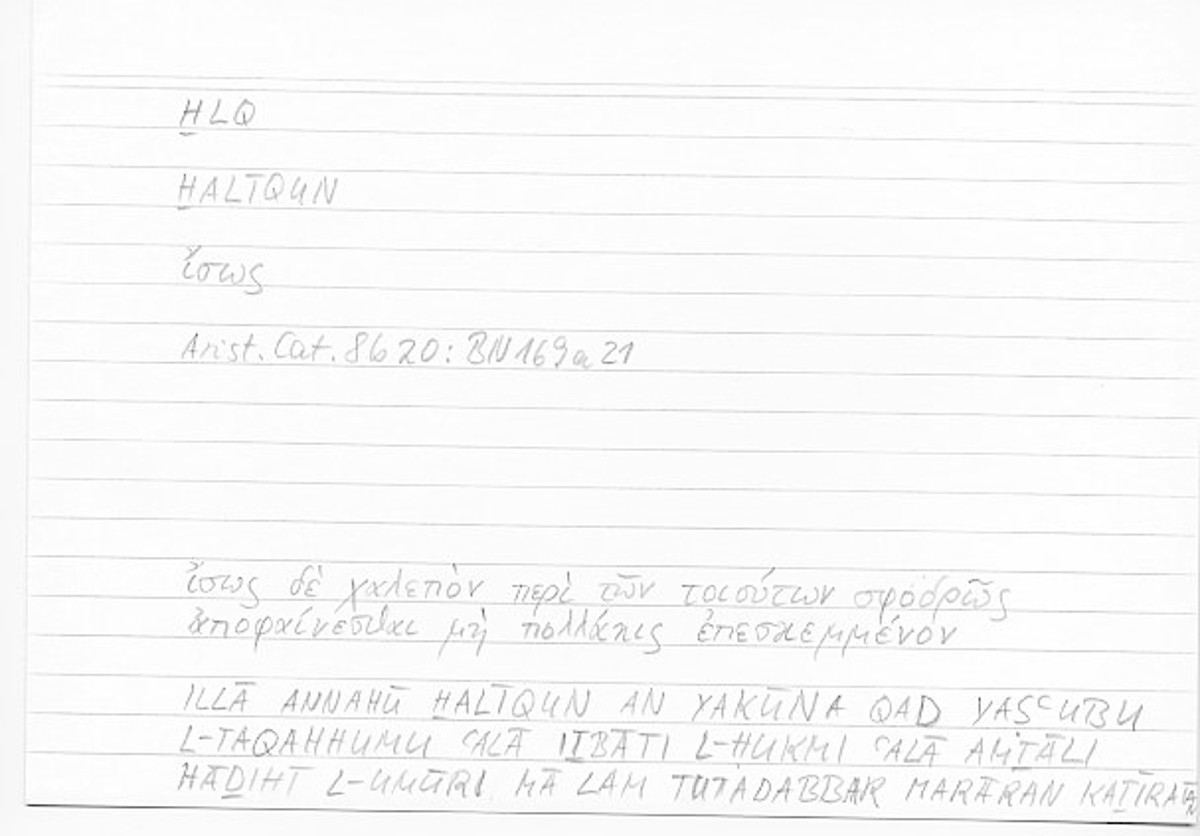 ḪLQ
ḪALĪQUN
ἴσως
Arist. Cat. 8b 20: BN 169a 21
ἴσως δὲ χαλεπὸν περὶ τῶν τοιούτων σφοδρῶς
ἀποφαίνεσθαι μὴ πολλάκις ἐπεσκεμμένον
ILLĀ ANNAHŪ ḪALĪQUN AN YAKŪNA QAD YAṢʿUBU
L-TAQAHHUMU ʿALĀ IṮBĀTI L-HUKMI ʿALĀ AMṮĀLI
HĀḎIHĪ L-UMŪRI MĀ LAM TUTADABBAR MARĀRAN KAṮĪRATAN